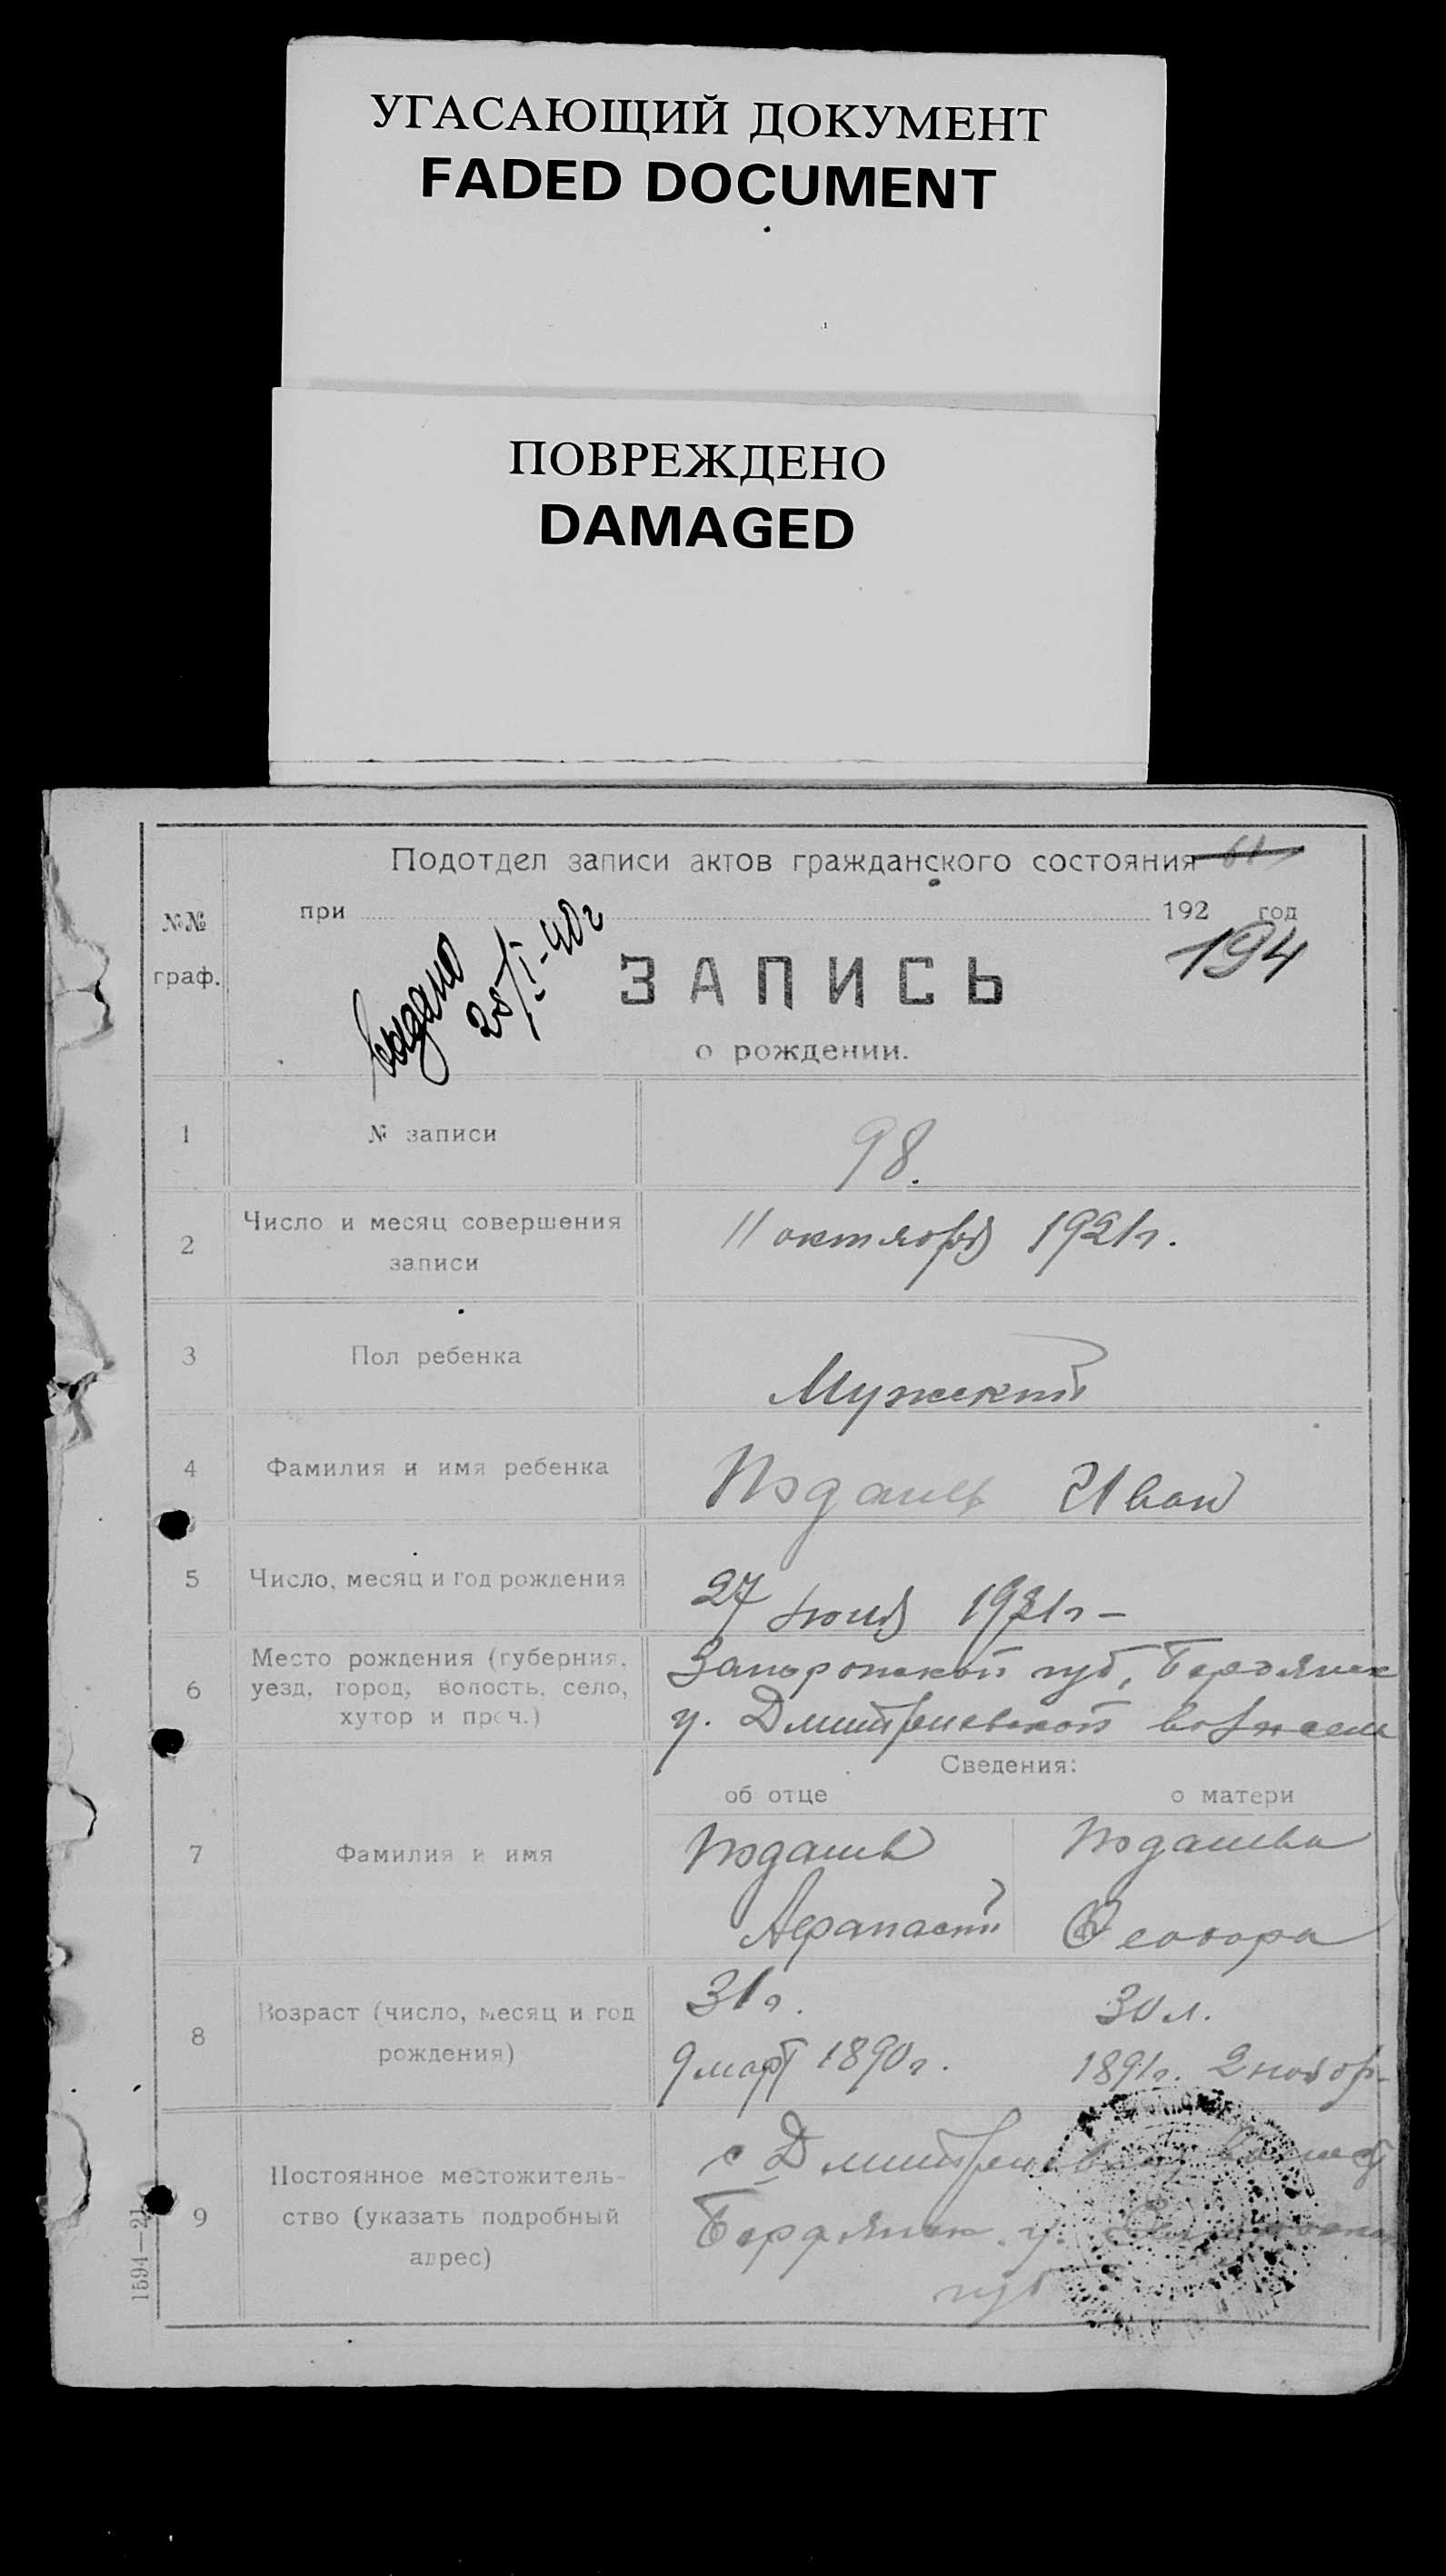 УГАСАЮЩИЙ ДОКУМЕНТ
FADED DOCUMENT
ПОВРЕЖДЕНО
DAMAGED
Подотдел записи актов гражданского состояния
№№ граф.
при 192 год
194
Выдано
28/I-40г
ЗАПИСЬ
о рождении.
1 № записи 98.
2 Число и месяц совершения записи
11 октября 1921г.
3 Пол ребенка Мужской
4 Фамилия и имя ребенка Иван
5 Число, месяц и год рождения
27 1921г-
6 Место рождения (губерния,
уезд, город, волость, село,
хутор и проч.)
Запорожской губ, Бердянск
у. Дмитриевской
Сведения:
об отце о матери
7 Фамилия и имя
Афанасий Феодора
8 Возраст (число, месяц и год
рождения)
31г. 30л.
9 март 1890г. 1891г. 2 ноябр-
9 Постоянное местожитель-
ство (указать подробный
адрес)
с Дмитриевка
Бердянск. у.
губ
1594—21